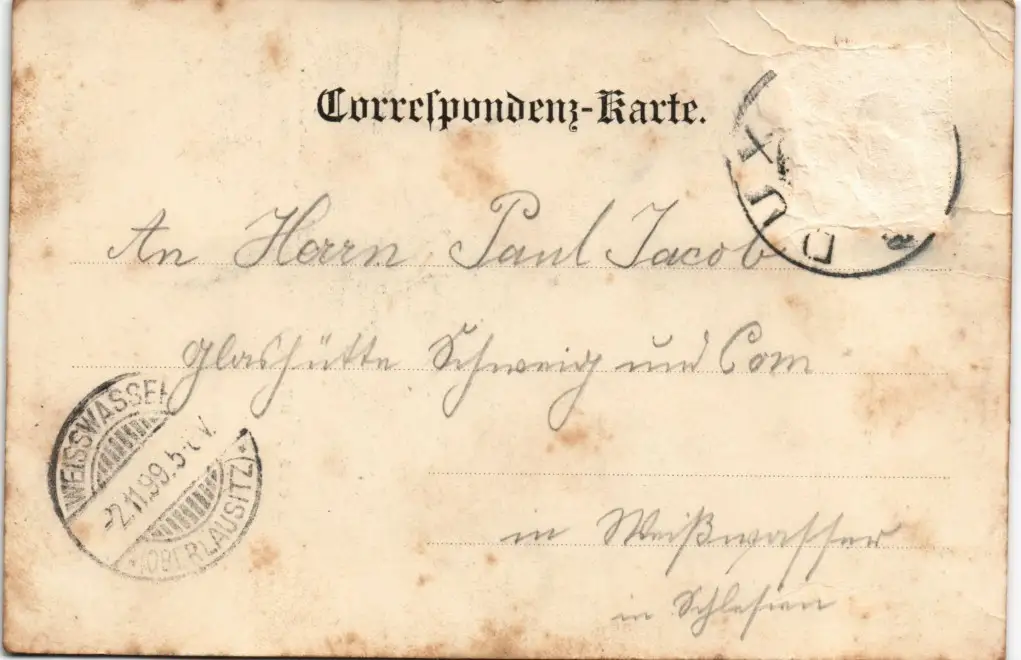 Correspondenz-Karte.
DUX
An Herrn Paul Jacob
Glashütte Schweig und Com
WEISSWASSER
2.11.99.5-6 V.
*(OBERLAUSITZ)*
in Weißwasser
in Schlesien